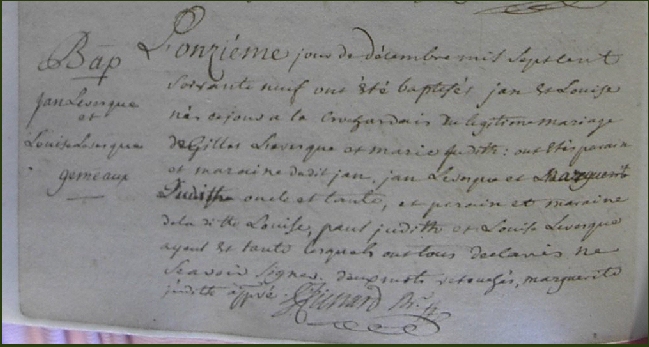 Bap
jan Levesque
et
Louise Levesque
gemeaux
L'onziéme jour de décembre mil sept cent
soixante neuf ont été baptisés jan & Louise
nés ce jour a la du legitime mariage
de Gilles Levesque et marie judith : ont étés parain
et maraine dudit jan, jan Levesque et Marguerite
Judith oncle et tante, et parain et maraine
de la ditte Louise, paul judith et Louise Levesque
ayeul & tante lesquels ont tous declarés ne
sçavoir signer. deux mots retouchés, marguerite
judith